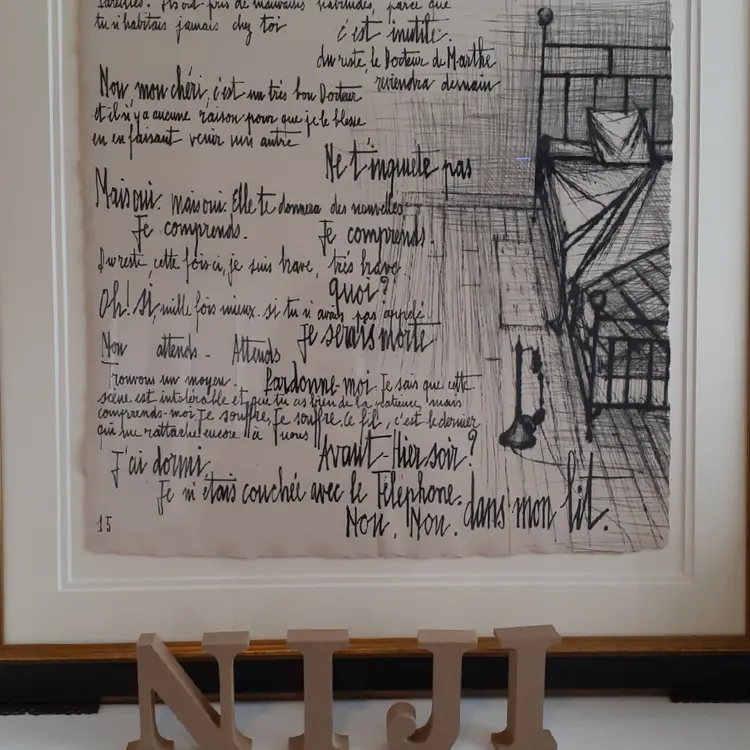 pareilles. Ils ont pris de mauvaises habitudes, parce que
tu n'habitais jamais chez toi
c'est inutile.
du reste le Docteur de Marthe
reviendra demain
Non mon chéri, c'est un très bon Docteur
et il n'y a aucune raison pour que je le blesse
en en faisant venir un autre
Ne t'inquiete pas
Mais oui. mais oui. Elle te donnera des nouvelles.
Je comprends. Je comprends.
Du reste, cette fois ci, je suis brave, très brave.
Quoi?
Oh! si, mille fois mieux. si tu n'avais pas appelé
Je serais morte
Non attends. Attends
Trouvons un moyen. Pardonne-moi. Je sais que cette
scène est intolérable et que tu as bien de la patience, mais
comprends-moi, Je souffre, Je souffre. Ce fil, c'est le dernier
qui me rattache encore à nous
Avant-Hier soir?
J'ai dormi.
Je m'étais couchée avec le Téléphone.
Non, Non. dans mon lit.
15
NIJI